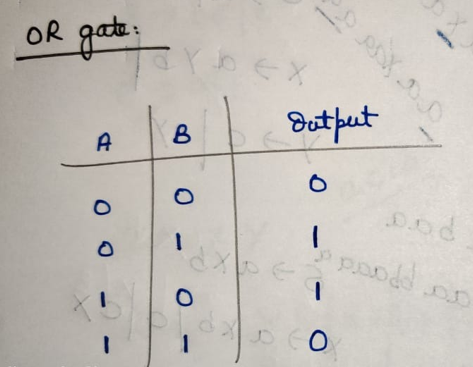 OR gate:
A B Output
0 0 0
0 1 1
1 0 1
1 1 0